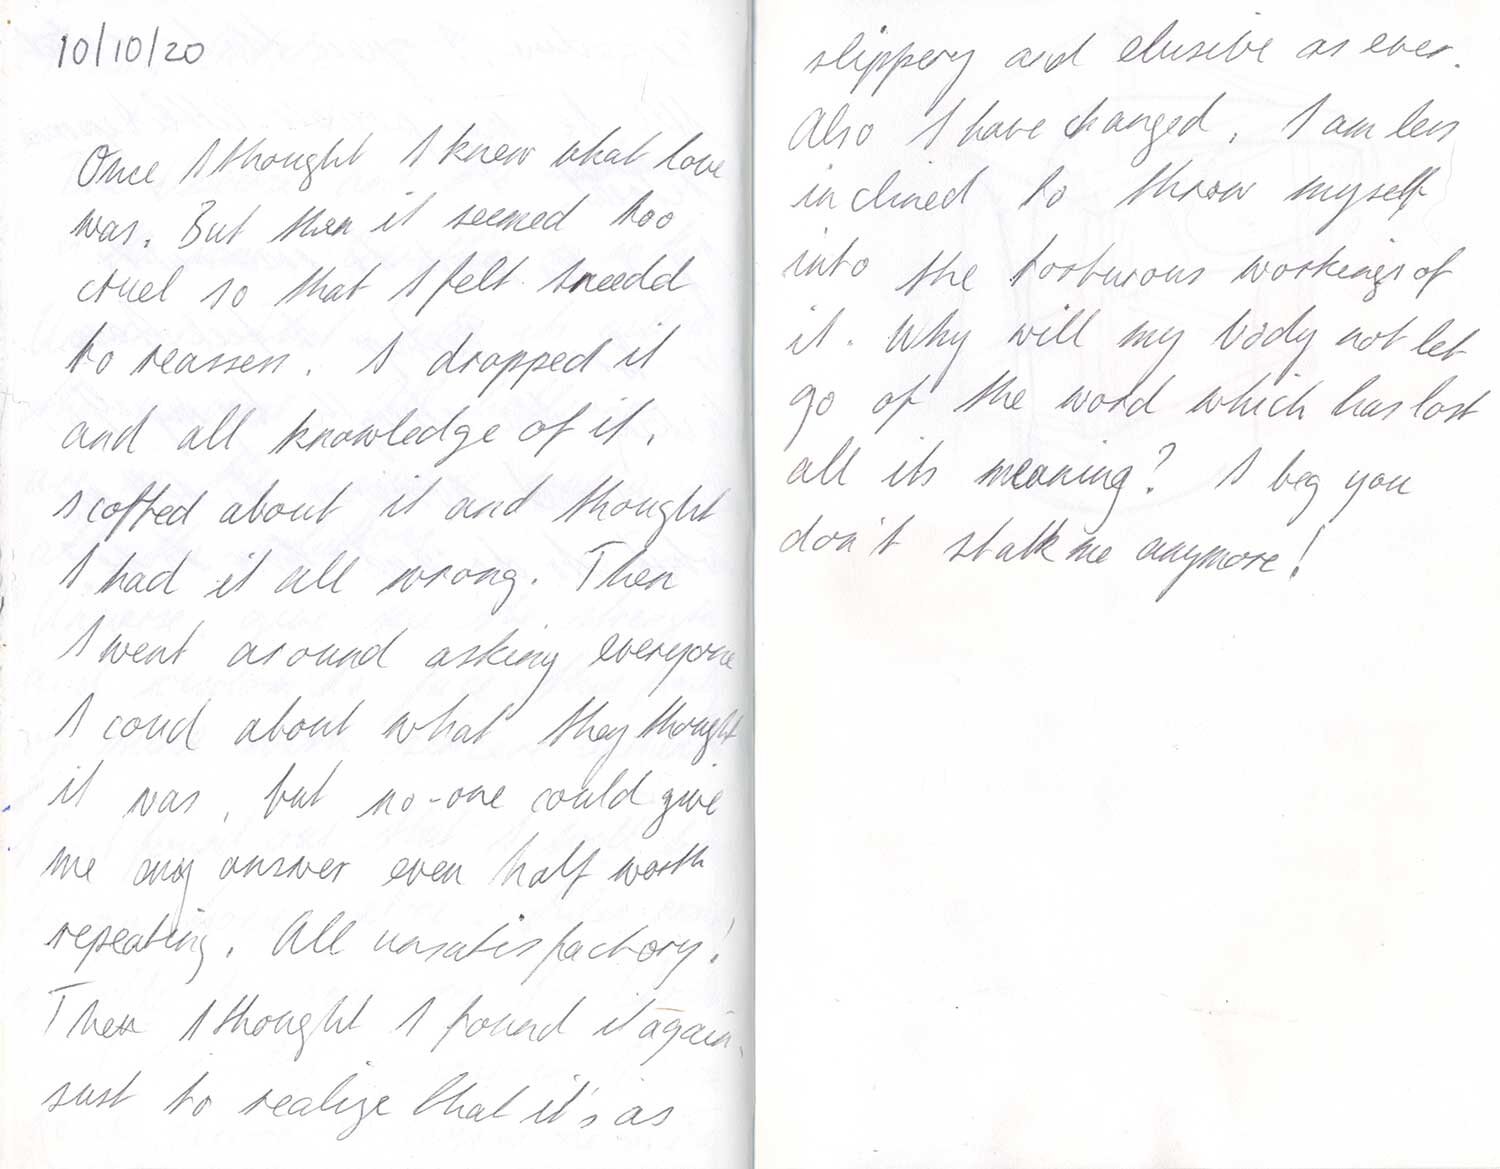 10/10/20
Once I thought I knew what love
was. But then it seemed too
cruel so that I felt I needd
to reassess. I dropped it
and all knowledge of it,
scoffed about it and thought
I had it all wrong. Then
I went around asking everyone
I coud about what they thought
it was, but no-one could give
me any answer even half worth
repeating. All unsatisfactory!
Then I thought I found it again.
Just to realize that it's as
slippery and elusive as ever.
Also I have changed. I am less
inclined to throw myself
into the torturous workings of
it. Why will my body not let
go of the word which has lost
all its meaning? I beg you
don't stalk me anymore!